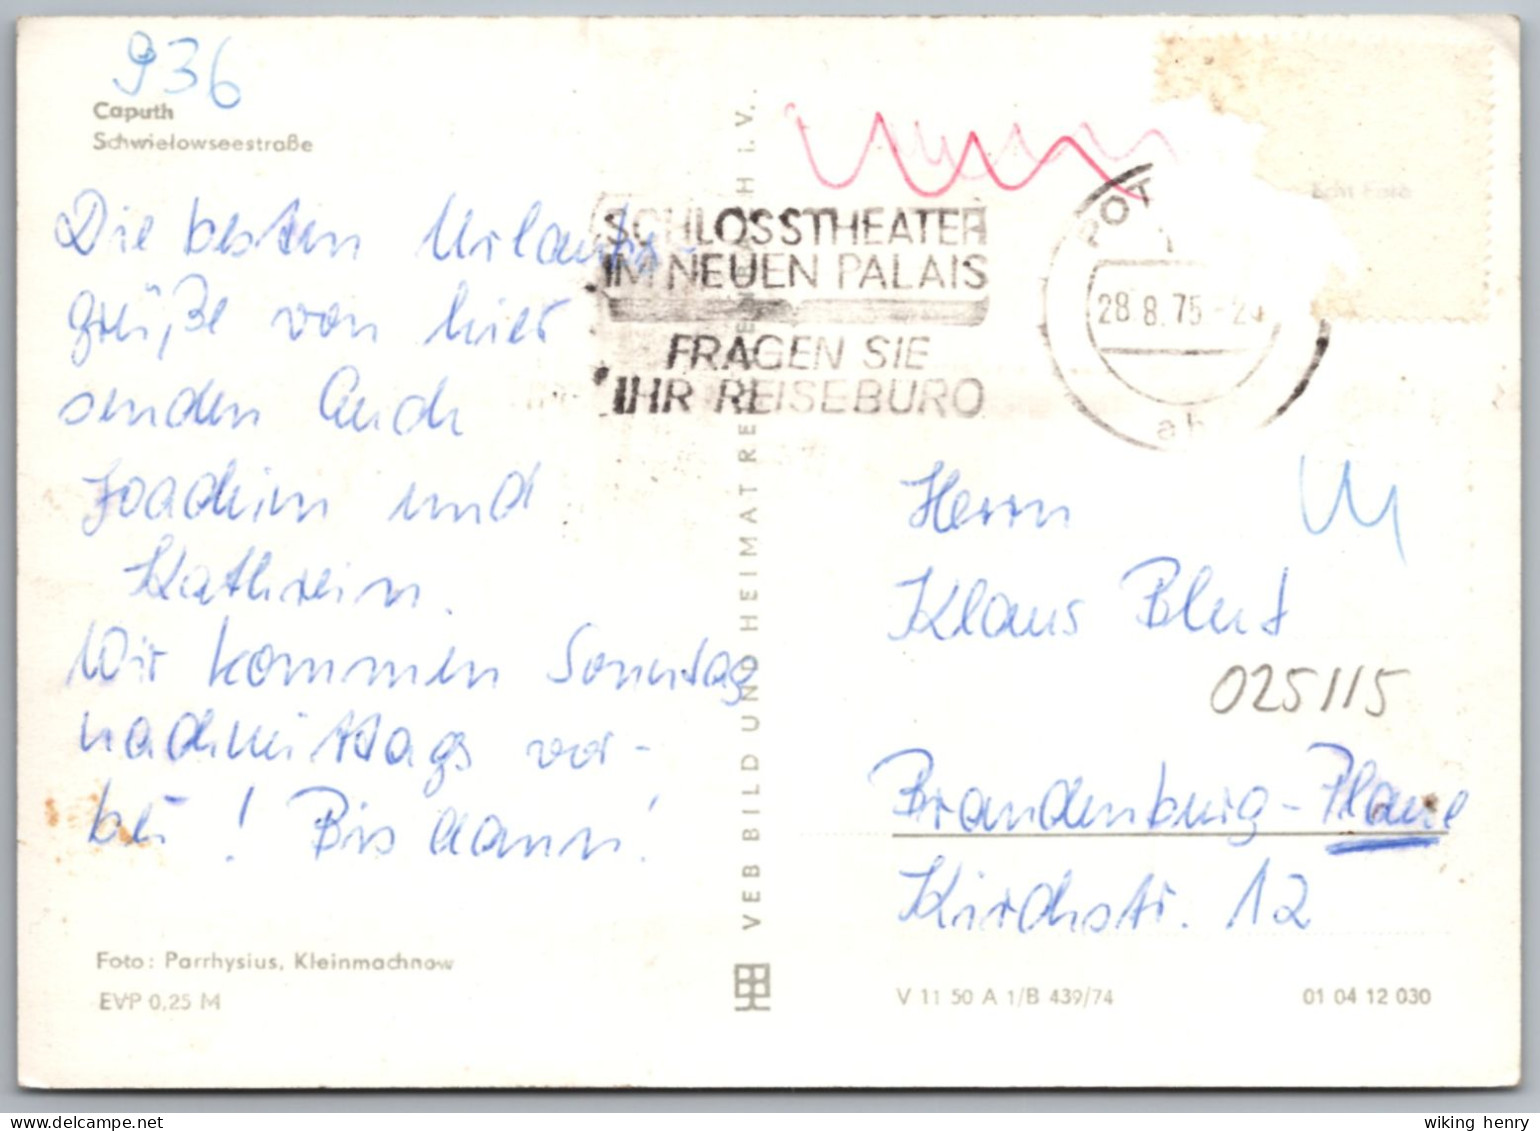 936
Caputh
Schwielowseestraße
Die besten Urlaubs-
grüße von hier
senden Euch
Joachim und
Kathrein.
Wir kommen Sonntag
nachmittags vor-
bei! Bis dann!
Foto: Parrhysius, Kleinmachnow
EVP 0,25 M
VEB BILD UND HEIMAT REICHENBACH i. V.
SCHLOSSTHEATER
IM NEUEN PALAIS
FRAGEN SIE
IHR REISEBÜRO
POT
28.8.75
Echt Foto
Herrn
Klaus Blut
025115
Brandenburg-Plaue
Kirchstr. 12
V 11 50 A 1/B 439/74
01 04 12 030
wiking henry